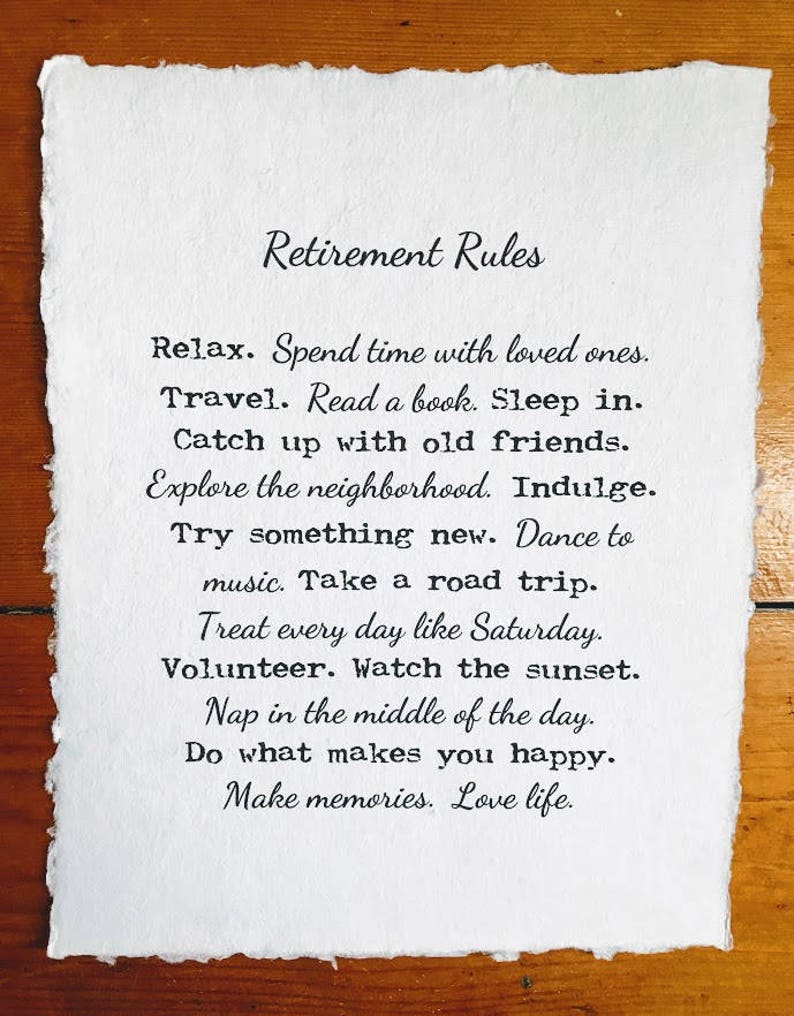 Retirement Rules
Relax. Spend time with loved ones.
Travel. Read a book. Sleep in.
Catch up with old friends.
Explore the neighborhood. Indulge.
Try something new. Dance to
music. Take a road trip.
Treat every day like Saturday.
Volunteer. Watch the sunset.
Nap in the middle of the day.
Do what makes you happy.
Make memories. Love life.